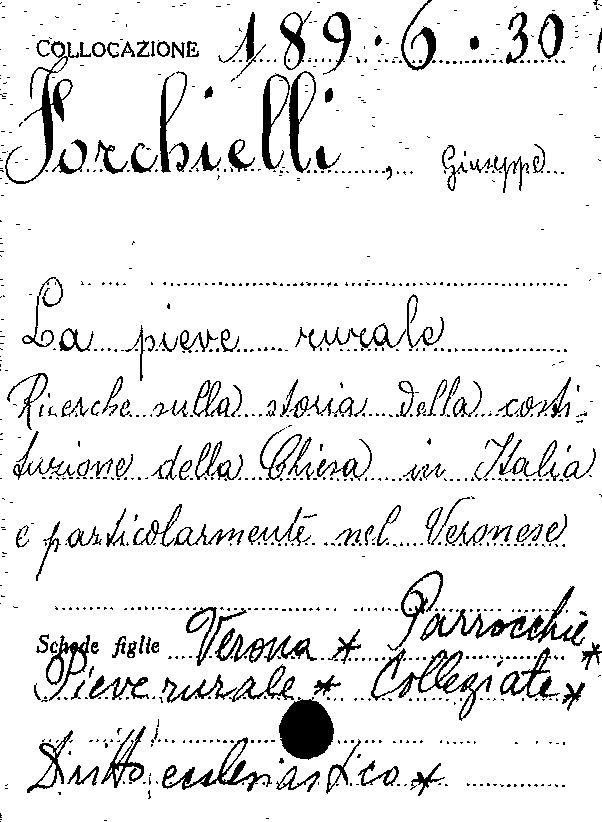 COLLOCAZIONE 189.6.30
Forchielli, Giuseppe
La pieve rurale
Ricerche sulla storia della costi-
tuzione della Chiesa in Italia
e particolarmente nel Veronese
Schede figlie Verona * Parrocchie *
Pieve rurale * Collegiate *
Diritto ecclesiastico *